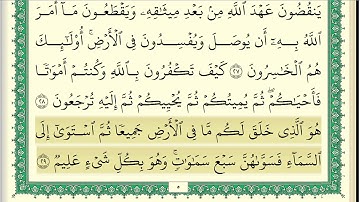 يَنقُضُونَ عَهْدَ ٱللَّهِ مِنۢ بَعْدِ مِيثَٰقِهِۦ وَيَقْطَعُونَ مَآ أَمَرَ
ٱللَّهُ بِهِۦٓ أَن يُوصَلَ وَيُفْسِدُونَ فِى ٱلْأَرْضِ ۚ أُو۟لَٰٓئِكَ
هُمُ ٱلْخَٰسِرُونَ ٢٧ كَيْفَ تَكْفُرُونَ بِٱللَّهِ وَكُنتُمْ أَمْوَٰتًا
فَأَحْيَٰكُمْ ۖ ثُمَّ يُمِيتُكُمْ ثُمَّ يُحْيِيكُمْ ثُمَّ إِلَيْهِ تُرْجَعُونَ ٢٨
هُوَ ٱلَّذِى خَلَقَ لَكُم مَّا فِى ٱلْأَرْضِ جَمِيعًا ثُمَّ ٱسْتَوَىٰٓ إِلَى
ٱلسَّمَآءِ فَسَوَّىٰهُنَّ سَبْعَ سَمَٰوَٰتٍ ۚ وَهُوَ بِكُلِّ شَىْءٍ عَلِيمٌ ٢٩
٥